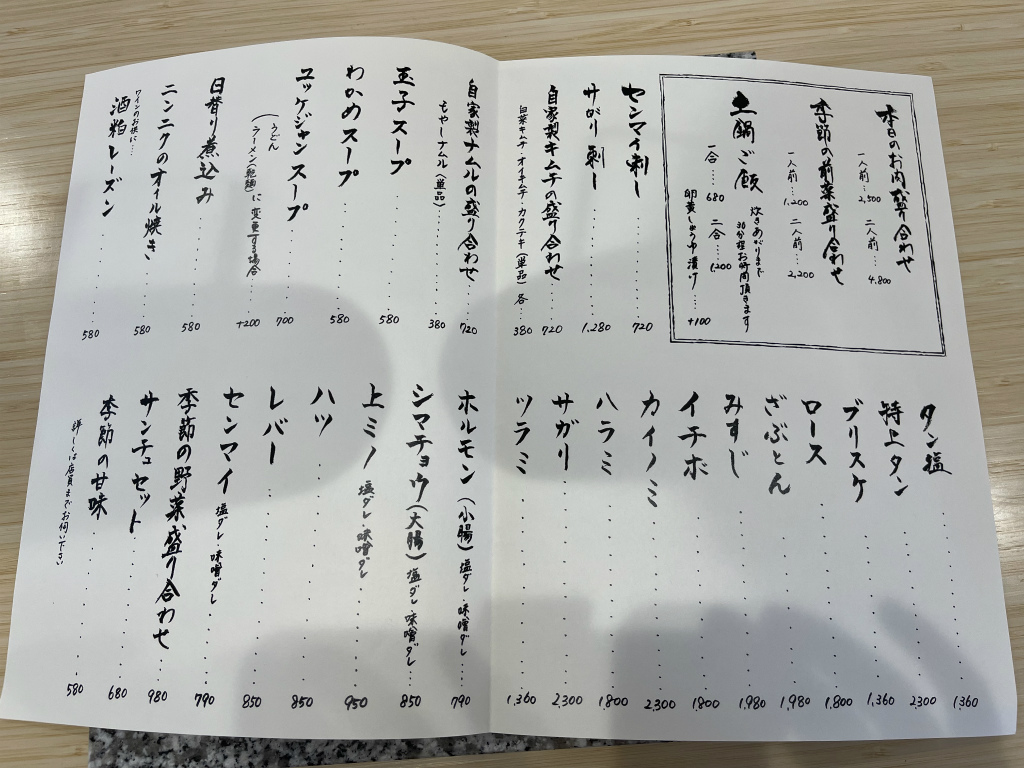 本日のお肉盛り合わせ
一人前…2,500
二人前…4,800
季節の前菜盛り合わせ
一人前…1,200
二人前…2,200
土鍋ご飯
炊きあがりまで
30分程お時間頂きます
一合……680
二合…1,200
卵黄しょうゆ漬け……+100
センマイ刺し……720
サガリ刺し……1,280
自家製キムチの盛り合わせ……720
白菜キムチ オイキムチ カクテキ（単品）各…380
自家製ナムルの盛り合わせ……720
もやしナムル（単品）……380
玉子スープ……580
わかめスープ……580
ユッケジャンスープ……700
（うどん
ラーメン（乾麺）に変更する場合……+200
日替り煮込み……580
ニンニクのオイル焼き……580
ワインのお供に…
酒粕レーズン……580
タン塩……1,360
特上タン……2,300
ブリスケ……1,360
ロース……1,800
ざぶとん……1,980
みすじ……1,980
イチボ……1,800
カイノミ……2,300
ハラミ……1,800
サガリ……2,300
ツラミ……1,360
ホルモン（小腸）塩ダレ・味噌ダレ……790
シマチョウ（大腸）塩ダレ・味噌ダレ……850
上ミノ 塩ダレ・味噌ダレ……950
ハツ……850
レバー……850
センマイ 塩ダレ・味噌ダレ……790
季節の野菜盛り合わせ……980
サンチュセット……680
季節の甘味……580
詳しくは店員までお伺い下さい